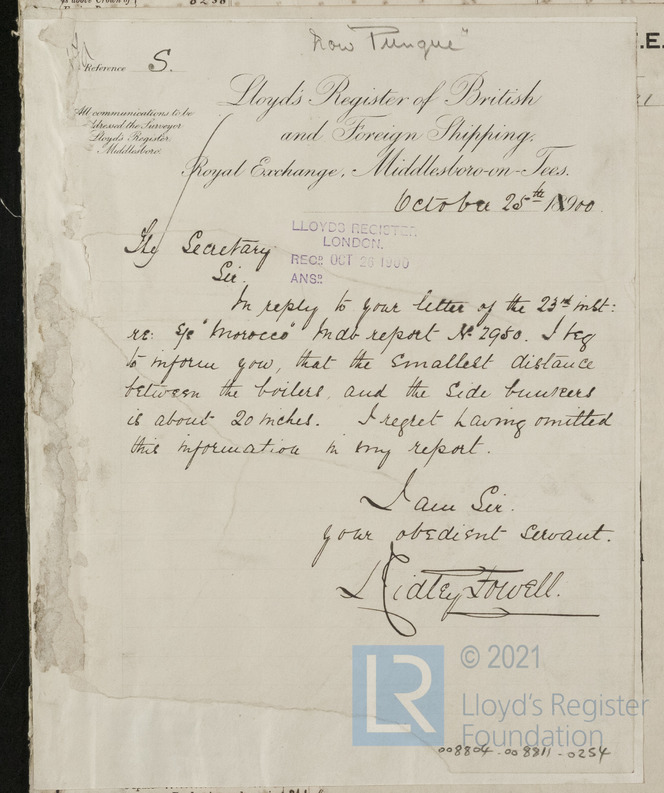 now "Pungue"
Reference S.
All communications to be
addressed the Surveyor
Lloyd's Register
Middlesboro.
Lloyd's Register of British
and Foreign Shipping.
Royal Exchange, Middlesboro-on-Tees.
October 25th 1900
The Secretary
Sir.
LLOYDS REGISTER
LONDON.
RECD. OCT 26 1900
ANSD.
In reply to your letter of the 23rd inst:
re: S/S "Morocco" Mdb report No 2980. I beg
to inform you, that the smallest distance
between the boilers, and the side bunkers
is about 20 inches. I regret having omitted
this information in my report.
I am Sir.
your obedient servant.
Ridley Fowell.
LR
© 2021
Lloyd's Register
Foundation
008804-008811-0254